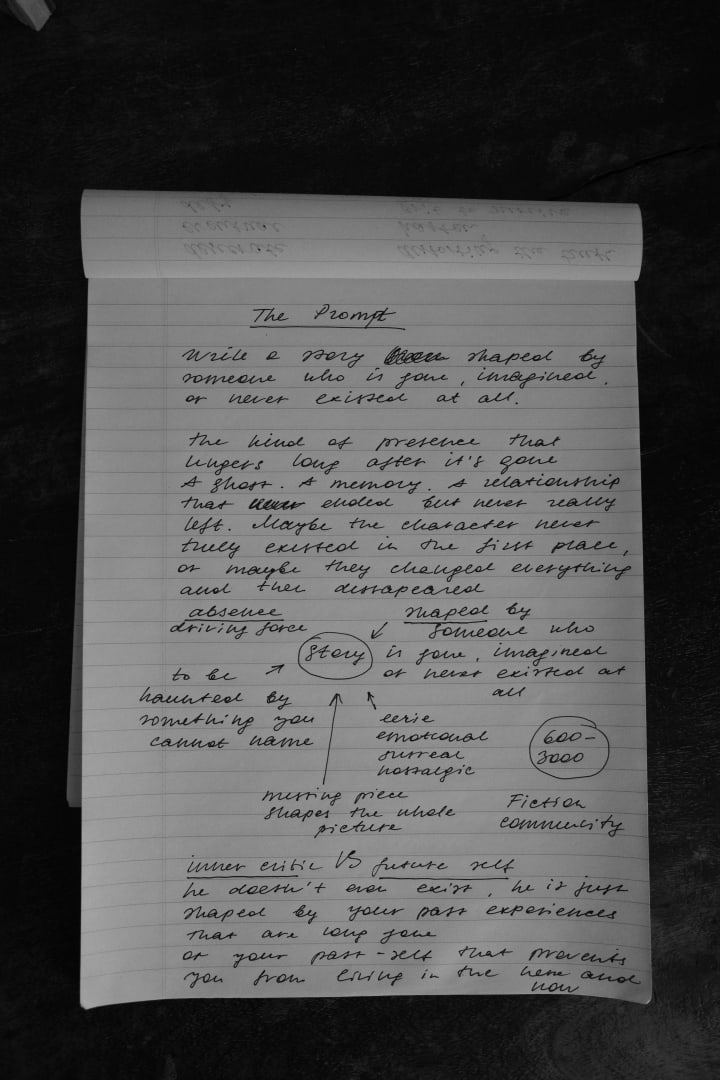 The Prompt
Write a story shaped by
someone who is gone, imagined,
or never existed at all.
the kind of presence that
lingers long after it's gone
A ghost. A memory. A relationship
that ended but never really
left. Maybe the character never
truly existed in the first place,
or maybe they changed everything
and then dissapeared
absence
driving force
shaped by
someone who
is gone, imagined
or never existed at
all
Story
to be
haunted by
something you
cannot name
eerie
emotional
surreal
nostalgic
600-
3000
missing piece
shapes the whole
picture
Fiction
community
inner critic VS future self
he doesn't even exist, he is just
shaped by your past experiences
that are long gone
or your past-self that prevents
you from living in the here and
now